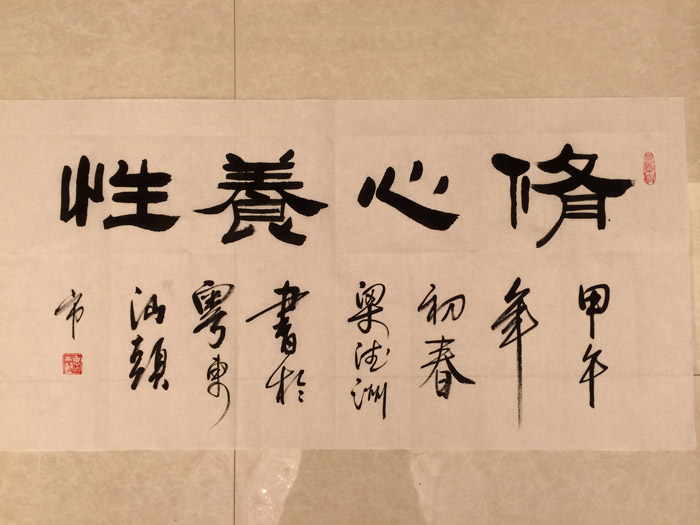 脩心養性
甲午
年
初春
梁法洲
書於
粵東
汕頭
市